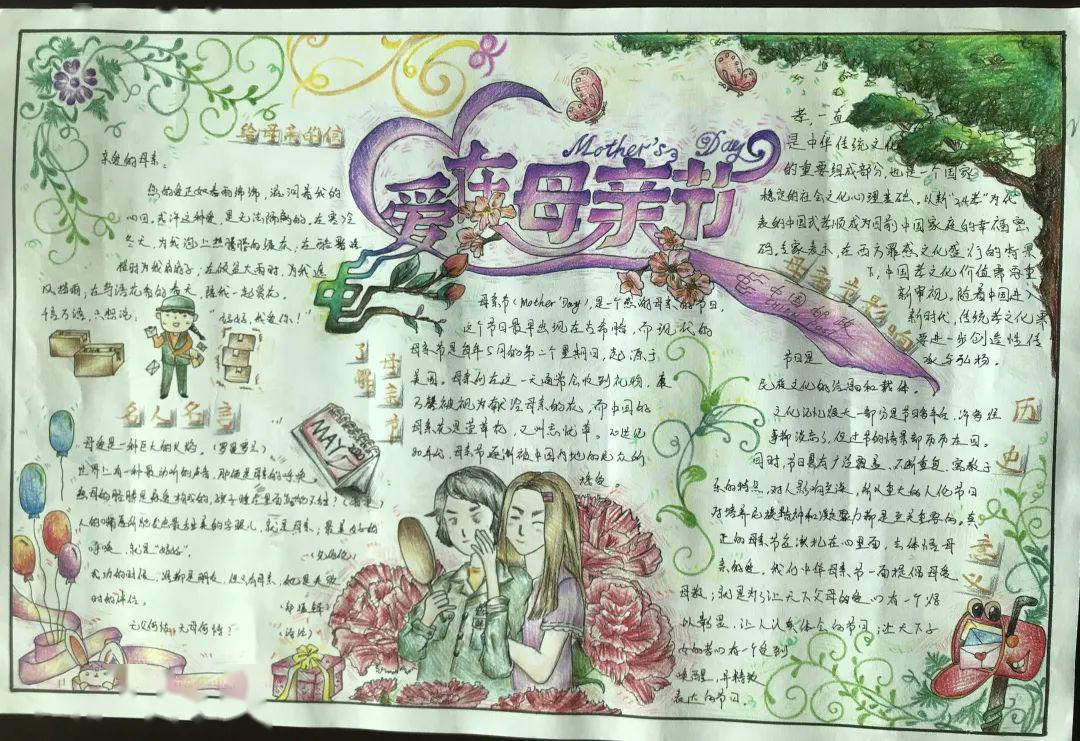 给母亲的信
亲爱的母亲：
您的爱正如春雨沛沛，滋润着我的
心田，或许这种爱，是无法隔断的，在寒冷
冬天，为我递上热腾腾的
在酷暑
时为我扇扇子，在倾盆大雨时，为我遮
风挡雨；在鸟语花香的春天，陪我一起赏花。
千言万语，只想说：“妈妈，我爱你！”
名人名言
母爱是一种巨大的火焰。（罗曼罗兰）
世界上有一种最动听的声音，那便是母亲的呼唤
人的嘴唇所能发出最甜美的字眼儿，就是母亲；最美好的
呼唤，就是“妈妈”。
成功的时候，谁都是朋友，但只有母亲，她是失败
时的伴侣。
（郑振铎）
无父何怙，无母何恃？
（诗经）
Mother's Day
爱在母亲节
中国邮政
了解母亲节
母亲节（Mother Day），是一个感谢母亲的节日
这个节日最早出现在古希腊，而现代的
母亲节是每年5月的第二个星期日，起源于
美国。母亲们在这一天通常会收到礼物，康
乃馨被视为献给母亲的花，而中国的
母亲花是萱草花，又叫忘忧草。
年代，母亲节逐渐被中国内地的民众所
接受。
MAY
母亲节影响
孝，一直
是中华传统文化
的重要组成部分，也是一个国家
稳定的社会文化心理基础。以新“24孝”为代
表的中国式孝顺成为目前中国家庭的幸福密
码。专家表示，在西方罪感文化盛行的背景
下，中国孝文化价值需要重
新审视。随着中国进入
新时代，传统孝文化需
要进一步创造性传
承与弘扬。
历史意义
节日是
民族文化的传阅和载体。
文化记忆很大一部分是节日与年俗，许多往
事都淡忘了，但过节的情景却历历在目。
同时，节日具有广泛覆盖、不断重复、寓教于
乐的特点，对人影响至深，所以重大的人伦节日
对培养民族精神和凝聚力都是至关重要的。真
正的母亲节是深扎在心里面，去体悟母
亲的爱。我们中华母亲节一面提倡母爱
母教；就是为了让天下父母的爱心有一个得
以彰显，让人认真体会的节日；让天下子
女的孝心有一个受到
唤醒，并精致
表达的节日。